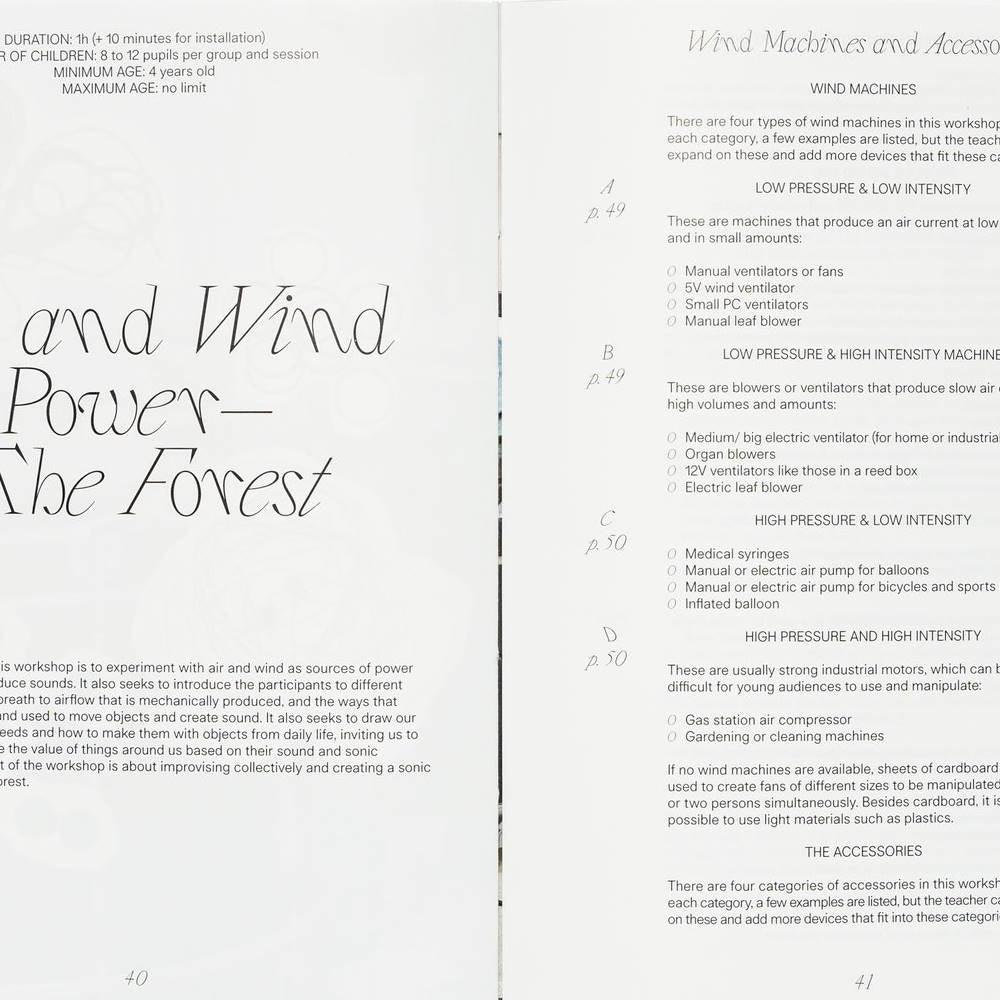 DURATION: 1h (+ 10 minutes for installation)
R OF CHILDREN: 8 to 12 pupils per group and session
MINIMUM AGE: 4 years old
MAXIMUM AGE: no limit
and Wind
Power—
The Forest
is workshop is to experiment with air and wind as sources of power
duce sounds. It also seeks to introduce the participants to different
breath to airflow that is mechanically produced, and the ways that
and used to move objects and create sound. It also seeks to draw our
eeds and how to make them with objects from daily life, inviting us to
e the value of things around us based on their sound and sonic
t of the workshop is about improvising collectively and creating a sonic
orest.
40
Wind Machines and Accesso
WIND MACHINES
There are four types of wind machines in this workshop
each category, a few examples are listed, but the teach
expand on these and add more devices that fit these ca
A
p. 49
LOW PRESSURE & LOW INTENSITY
These are machines that produce an air current at low
and in small amounts:
O Manual ventilators or fans
O 5V wind ventilator
O Small PC ventilators
O Manual leaf blower
B
p. 49
LOW PRESSURE & HIGH INTENSITY MACHINE
These are blowers or ventilators that produce slow air
high volumes and amounts:
O Medium/ big electric ventilator (for home or industrial
O Organ blowers
O 12V ventilators like those in a reed box
O Electric leaf blower
C
p. 50
HIGH PRESSURE & LOW INTENSITY
O Medical syringes
O Manual or electric air pump for balloons
O Manual or electric air pump for bicycles and sports
O Inflated balloon
D
p. 50
HIGH PRESSURE AND HIGH INTENSITY
These are usually strong industrial motors, which can b
difficult for young audiences to use and manipulate:
O Gas station air compressor
O Gardening or cleaning machines
If no wind machines are available, sheets of cardboard
used to create fans of different sizes to be manipulated
or two persons simultaneously. Besides cardboard, it is
possible to use light materials such as plastics.
THE ACCESSORIES
There are four categories of accessories in this worksh
each category, a few examples are listed, but the teacher ca
on these and add more devices that fit into these categori
41